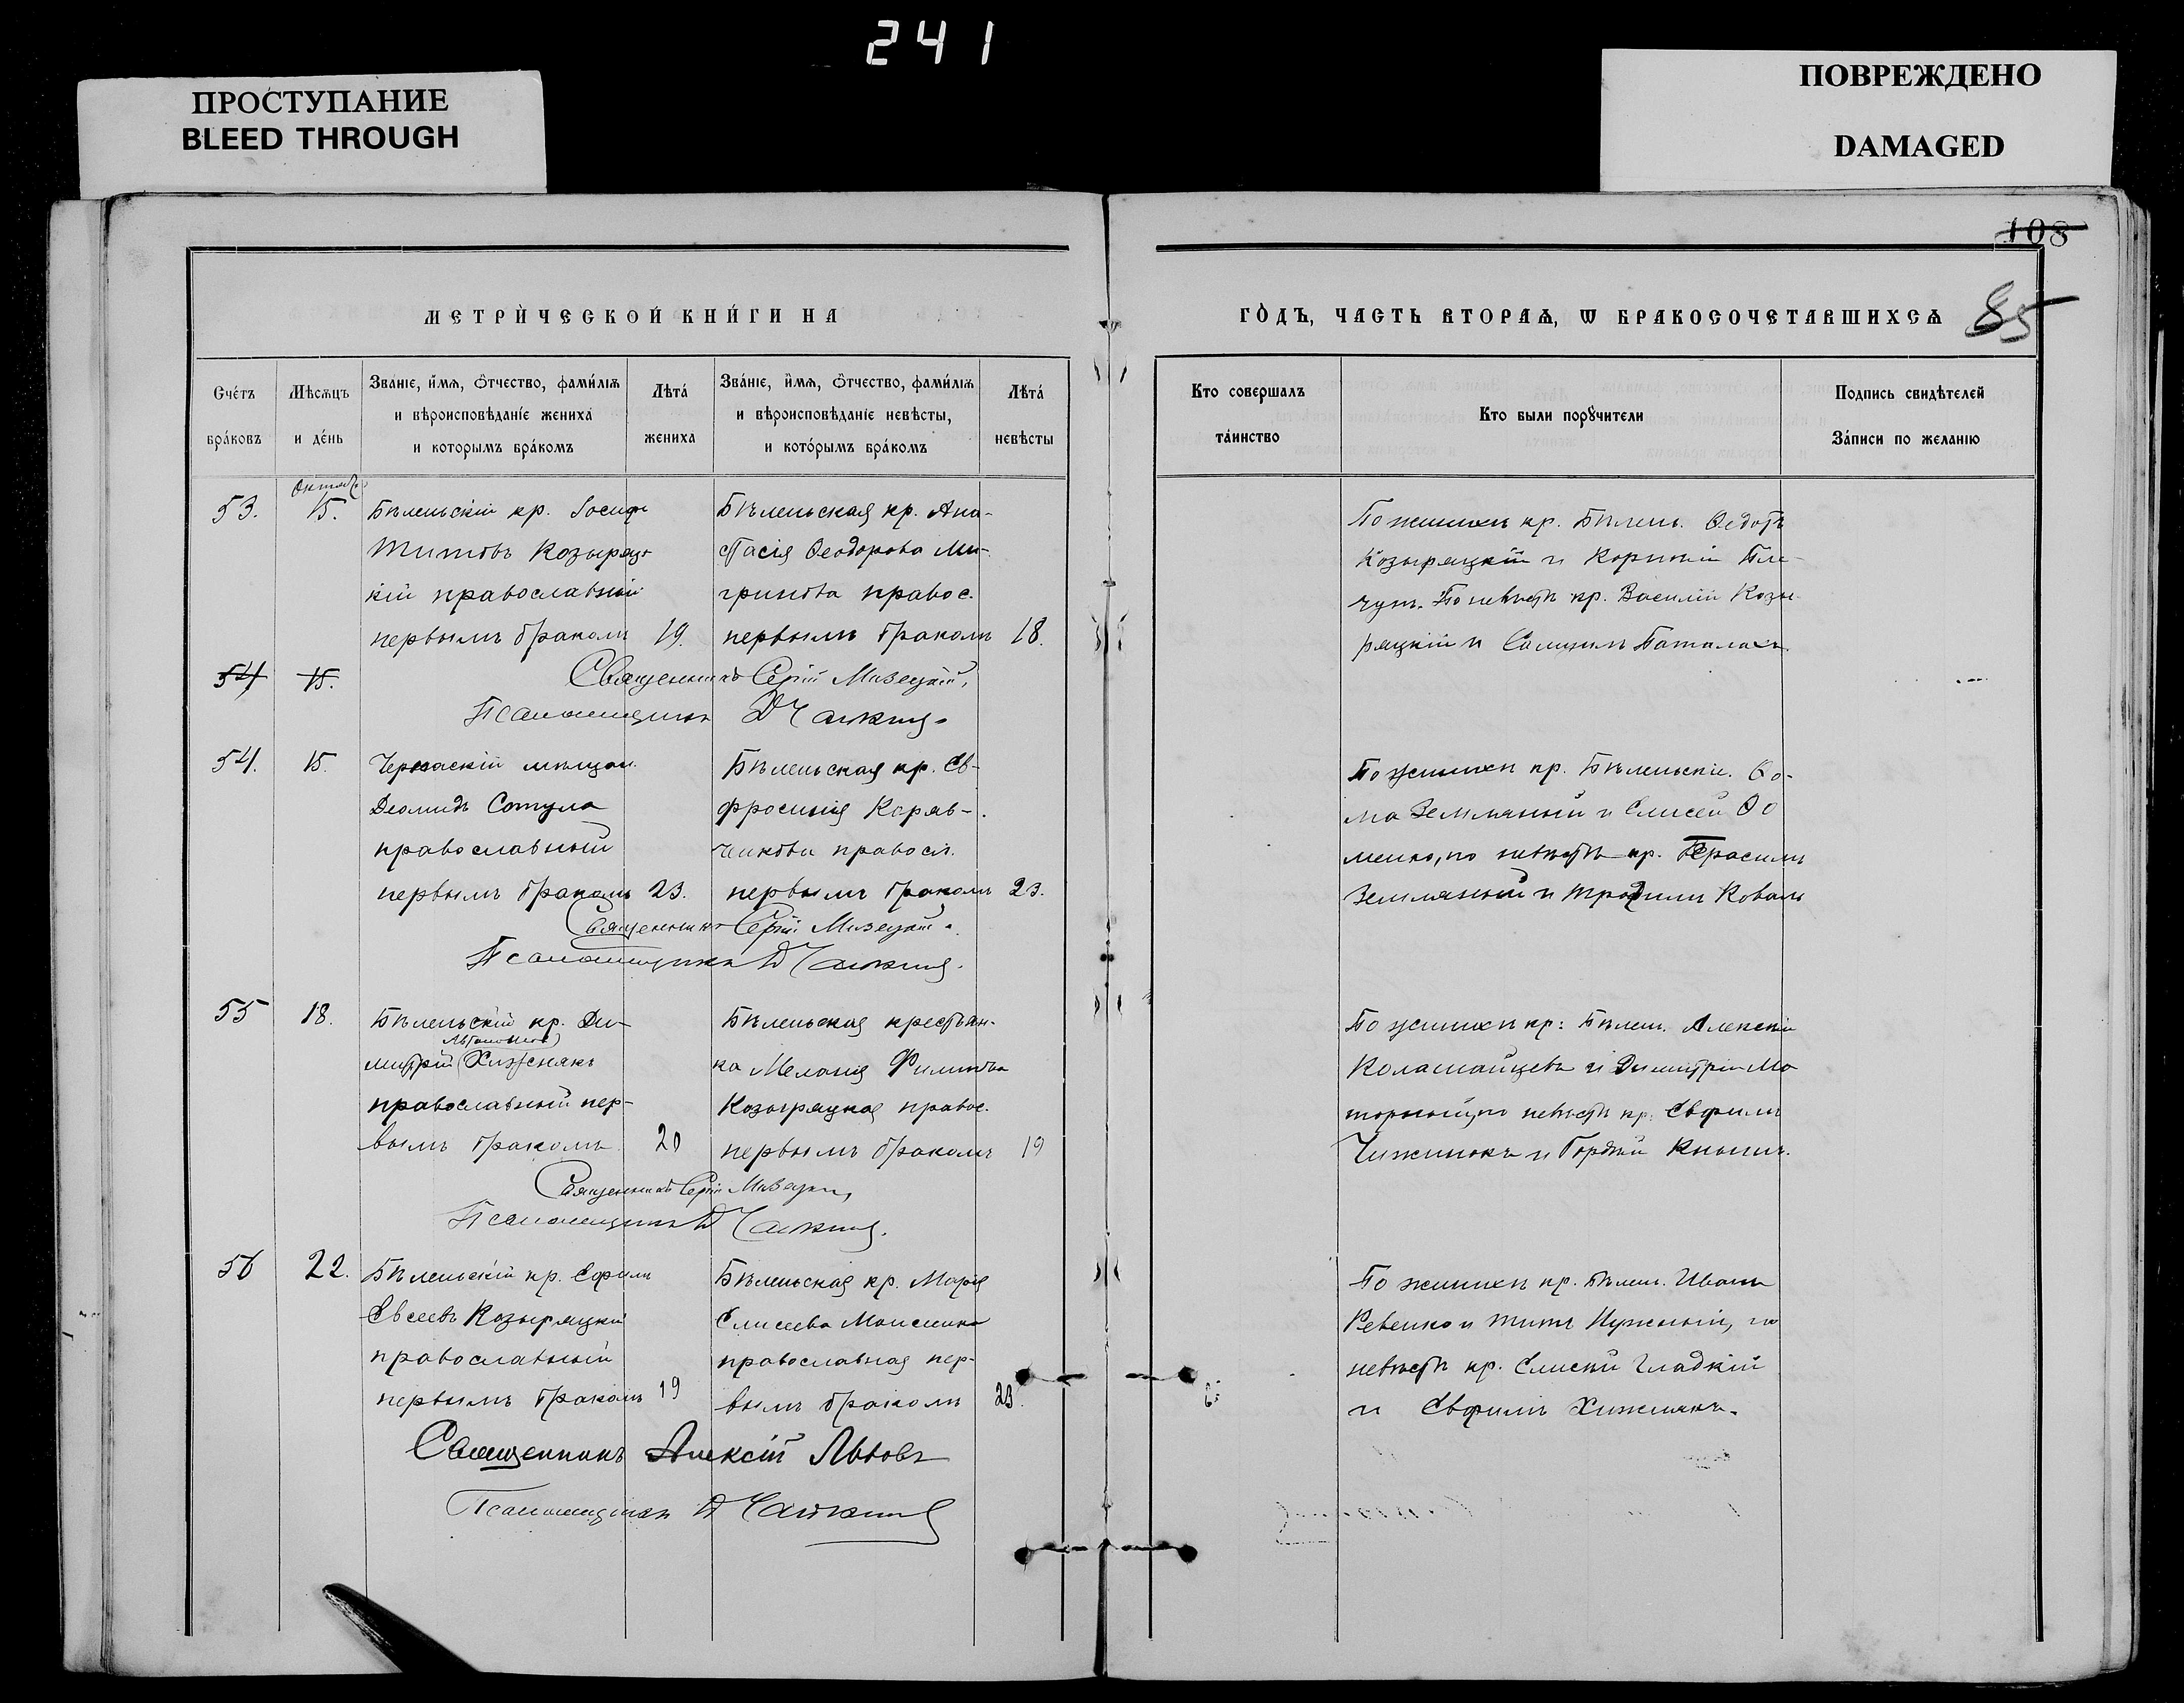 241
ПРОСТУПАНИЕ
BLEED THROUGH
ПОВРЕЖДЕНО
DAMAGED
108
85
МЕТРИ́ЧЕСКОЙ КНИ́ГИ НА
ГО́ДЪ, ЧАСТЬ ВТОРАѦ, Ѡ БРАКОСОЧЕТАВШИХСѦ
Сче́тъ бра́ковъ
Мѣсѧцъ и де́нь
Зва́ніе, и́мѧ, о́тчество, фами́лїѧ
и вѣроисповѣда́ніе жениха́
и которымъ бра́комъ
Лѣта́ жениха
Зва́ніе, и́мѧ, о́тчество, фами́лїѧ
и вѣроисповѣданіе невѣсты,
и кото́рымъ бра́комъ
Лѣта́ невѣсты
Кто совершалъ та́инство
Кто были порꙋчители
Подпись свидѣтелей
За́писи по желанію
53.
15.
Бѣленьскій кр. Іосифъ
Титовъ Козыряц-
кій православный
первымъ бракомъ 19.
Бѣленьская кр. Ана-
стасія Ѳеодорова
правос.
первымъ бракомъ 18.
По женихѣ кр. Бѣлен. Ѳедотъ
Козыряцкій и Корнилій
По невѣстѣ кр. Василій Козы-
ряцкій и
54
15.
Священникъ Сергій Мивецкій,
Псаломщикъ Д Чайкинъ
54.
15.
Черкаскій мѣщан.
Діомидъ Сотула
православный
первымъ бракомъ 23.
Бѣленьская кр. Ев-
фросинія Коряв-
чикова правосл.
первымъ бракомъ 23.
По женихѣ кр. Бѣленьскіе. Ѳо-
ма Земляный и Елисей Ѳо
менко, по невѣстѣ кр. Герасимъ
Земляный и Трофимъ Коваль
Священникъ Сергій Мивецкій.
Псаломщикъ Д Чайкинъ.
55
18.
Бѣленьскій кр. Ди-
митрій Хижнякъ
православный пер-
вымъ бракомъ 20
Бѣленьская крестьян-
ка Меланія Филипова
Козыряцкая правос.
первымъ бракомъ 19
По женихѣ кр: Бѣлен. Алексій
Коламайцевъ и Димитрій Мо
торный, по невѣстѣ кр. Евфимъ
Чижинокъ и Гордѣй Кнышъ.
Священникъ Сергій Мивецкій,
Псаломщикъ Д Чайкинъ.
56
22.
Бѣленьскій кр. Ефимъ
Евсеевъ Козыряцкій
православный
первымъ бракомъ 19
Бѣленьская кр. Марія
Елисеева Моисеенко
православная пер-
вымъ бракомъ 23.
По женихѣ кр. Бѣлен. Иванъ
Ревенко и Титъ Нужный, по
невѣстѣ кр. Елисей Гладкій
и Евфимъ Хижнякъ.
Священникъ Алексій Львовъ
Псаломщикъ Д Чайкинъ